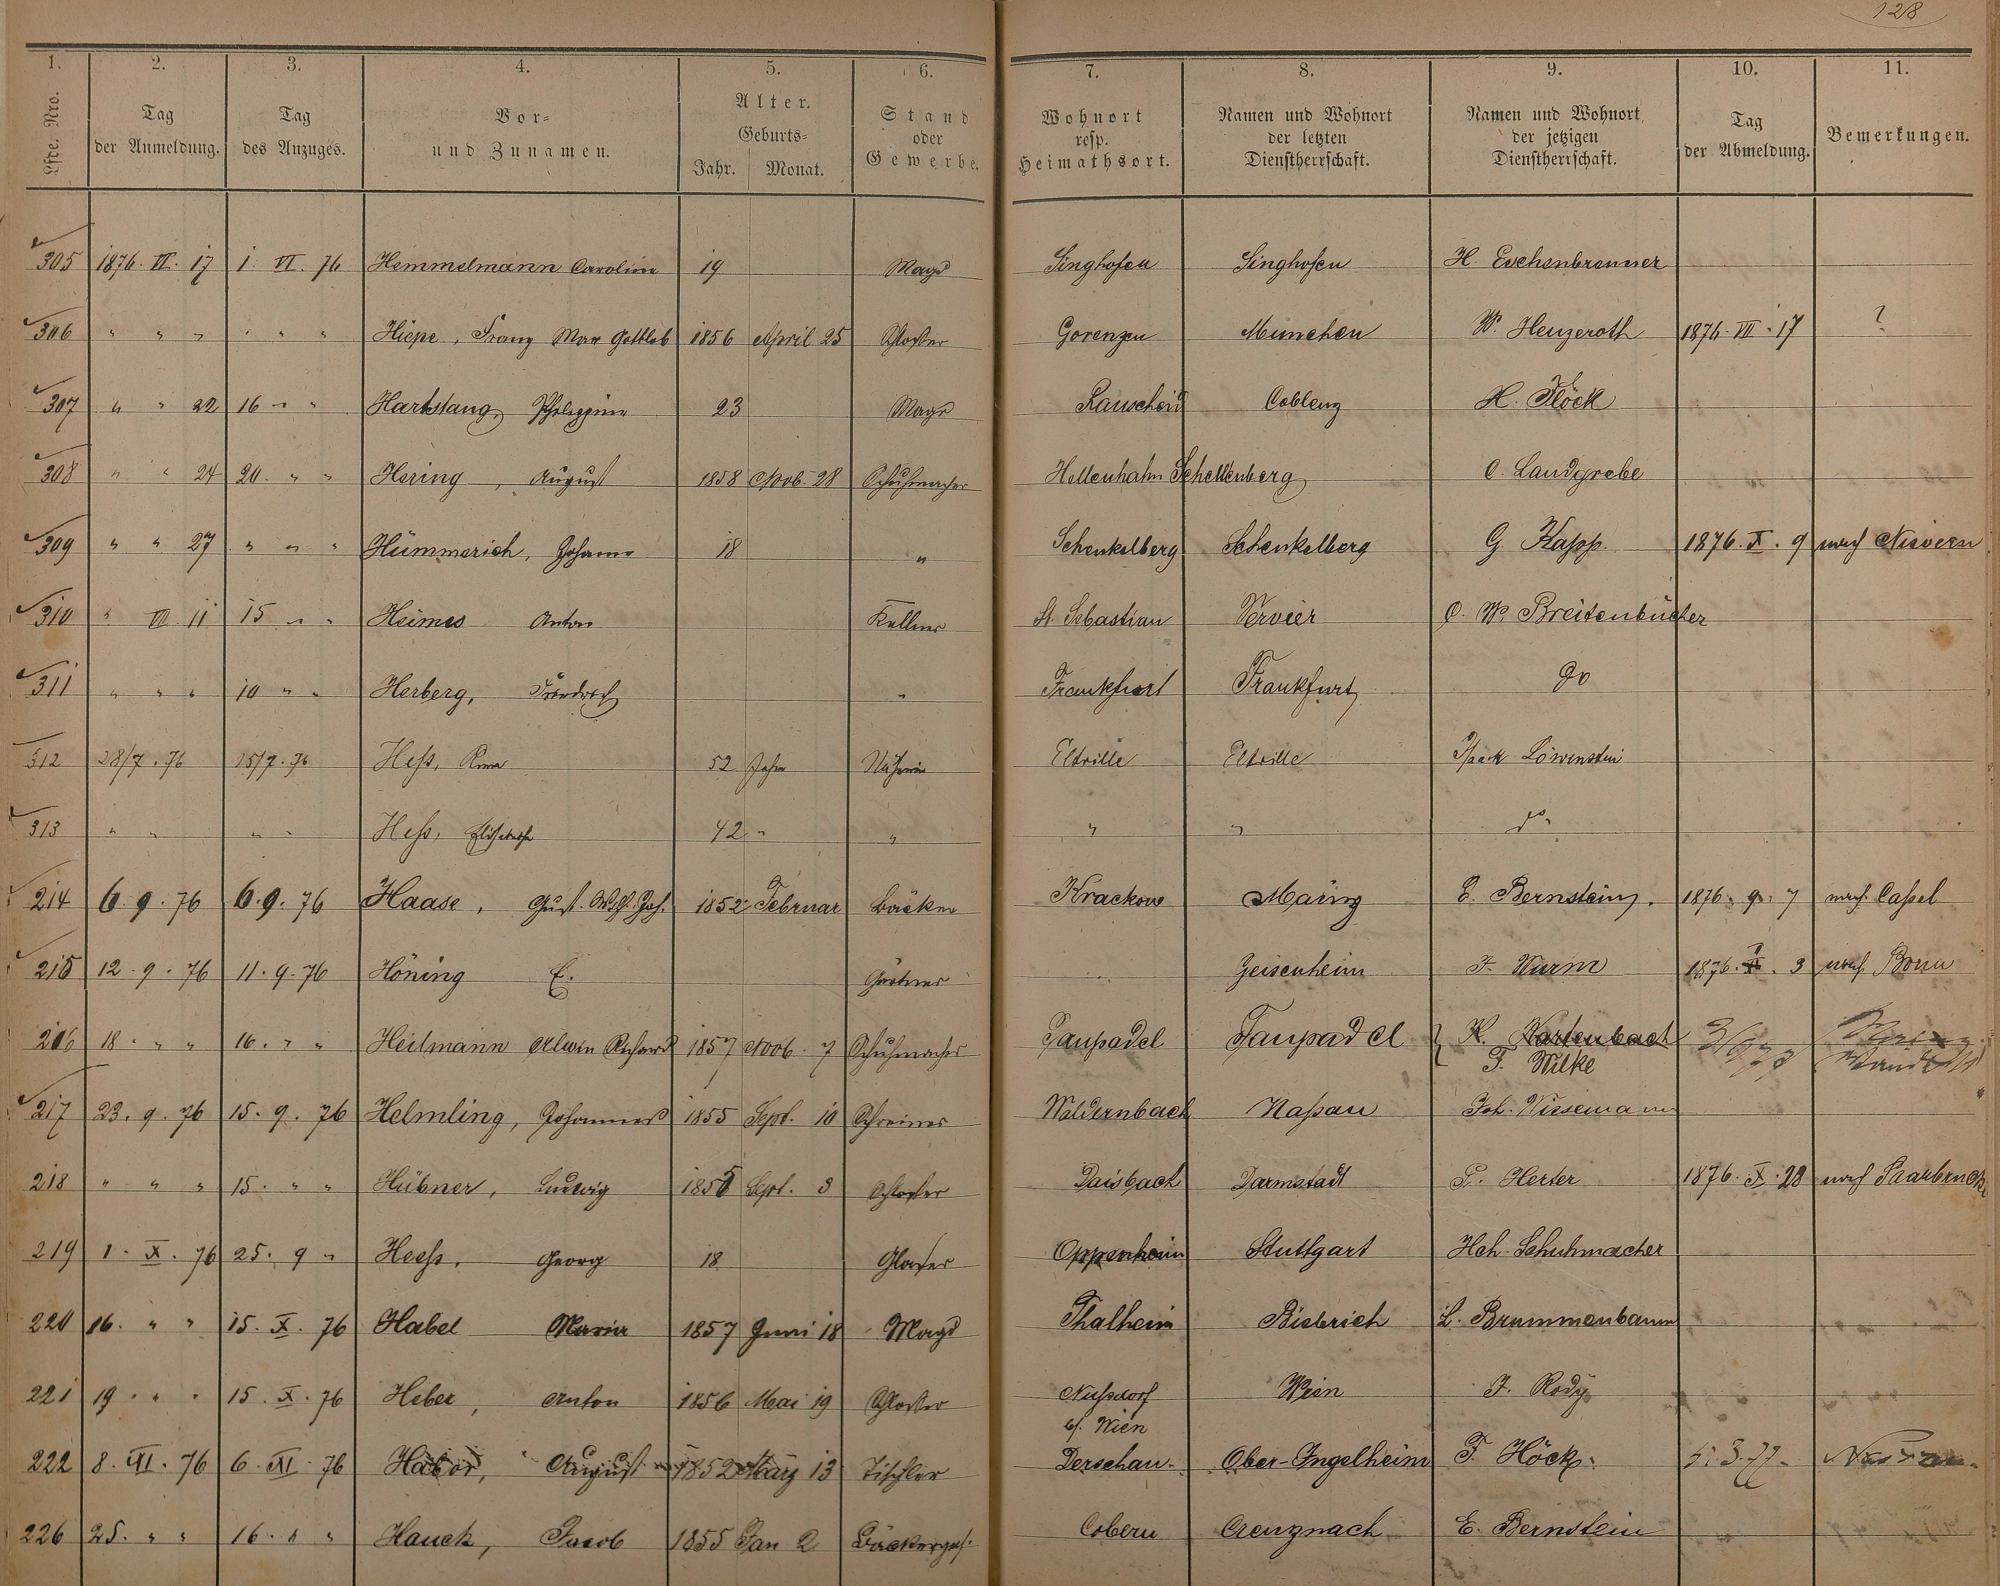 128
1. 2. 3. 4. 5. 6. 7. 8. 9. 10. 11.
Lfde. Nro. | Tag der Anmeldung. | Tag des Anzuges. | Vor- und Zunamen. | Alter. Geburts- Jahr. Monat. | Stand oder Gewerbe. | Wohnort resp. Heimathsort. | Namen und Wohnort der letzten Dienstherrschaft. | Namen und Wohnort der jetzigen Dienstherrschaft. | Tag der Abmeldung. | Bemerkungen.
305 1876. VI. 17 1. VI. 76 Hemmelmann Caroline 19 Magd Singhofen Singhofen H. Eschenbrenner
306 " " " " " " Hiepe, Franz Max Gottlob 1856 April 25 Schlosser Gorenzen München W. Henzeroth 1876. VII. 17 ?
307 " " 22 16 " " Hartstang, Philippine 23 Magd Rauscheid Coblenz H. Flöck
308 " " 24 20. " " Hering, August 1858 Nov. 28 Schuhmacher Hellenhahn Schellenberg C. Landgrebe
309 " " 27 " " " Hümmerich, Johann 18 " Schenkelberg Schenkelberg G. Kapp. 1876. X. 9 nach Nievern
310 " VII 11 15 " " Heimes Anton Kellner St. Sebastian Vervier C. W. Breitenbücher
311 " " " 10 " " Herberg, Friedrich " Frankfurt Frankfurt do
312 28/7. 76 15/7. 76 Heß, 52 Jahre Näherin Eltville Eltville Isaak Löwenstein
313 " " " " Heß, Elisabethe 42 " " " " do
214 6. 9. 76 6. 9. 76 Haase, Gust. Wilh. Joh. 1852 Februar Bäcker Krackow Mainz E. Bernstein. 1876. 9. 7 nach Caßel
215 12. 9. 76 11. 9. 76 Höning E. Gärtner Geisenheim F. Wurm 1876. X. 3 nach Bonn
216 18. " " 16. " " Heilmann Alwin Richard 1857 Novb. 7 Schuhmacher Taupadel Taupadel } K. Kartenbach
F. Wilke
217 23. 9. 76 15. 9. 76 Helmling, Johannes 1855 Sept. 10 Schreiner Waldernbach Naßau Joh. Wiesemann
218 " " " 15. " " Hübner, Ludwig 1855 Sept. 3 Schlosser Daisbach Darmstadt P. Herter 1876. X. 28 nach Saarbrück
219 1. X. 76 25. 9 " Heeß. Georg 18 Glaser Oppenheim Stuttgart Hch. Schuhmacher
220 16. " " 15. X. 76 Habel Maria 1857 Juni 18 Magd Thalheim Biebrich L. Brummenbaum
221 19 " " 15. X. 76 Heber, Anton 1856 Mai 19 Schlosser Nußdorf b/. Wien Wien F. Rody
222 8. XI. 76 6. XI. 76 Habor, August 1852 März 13 Tischler Derschau. Ober-Ingelheim F. Höck. 5. 3. 77.
226 25. " " 16. " " Hauck, Jacob 1855 Jan 2 Bäckerges. Cobern Creuznach E. Bernstein